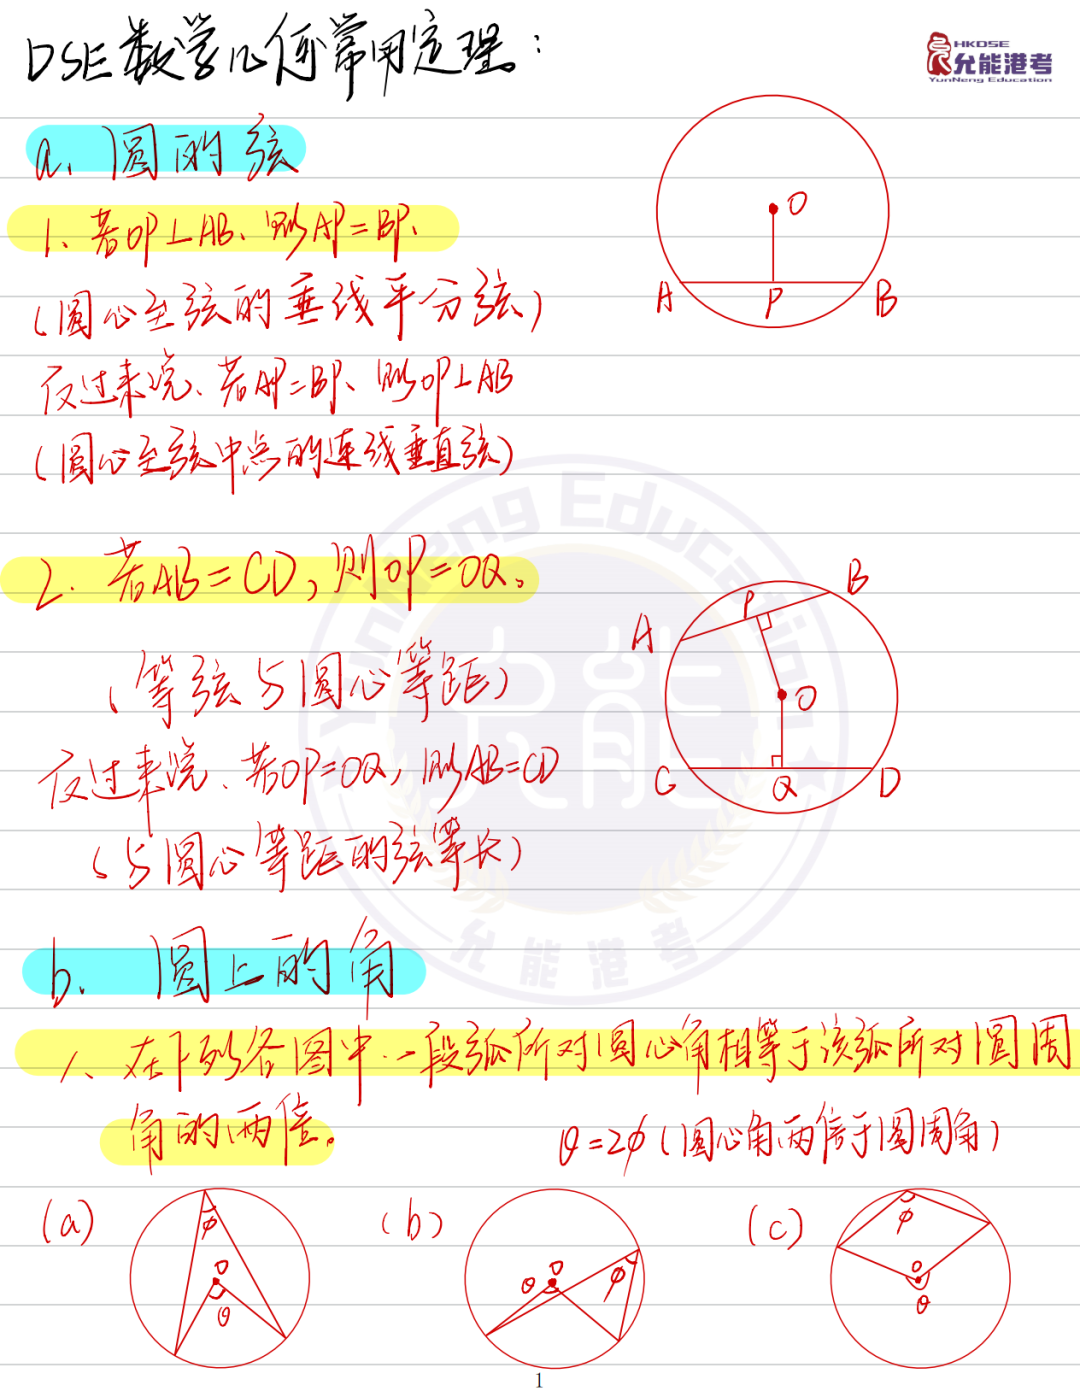 DSE数学几何常用定理：
HKDSE
允能港考
YunNeng Education
a. 圆的弦
1、若OP⊥AB、则AP=BP、
(圆心至弦的垂线平分弦)
反过来说、若AP=BP、则OP⊥AB
(圆心至弦中点的连线垂直弦)
O
A P B
2. 若AB=CD，则OP=OQ。
(等弦与圆心等距)
反过来说、若OP=OQ，则AB=CD
(与圆心等距的弦等长)
A P B
O
C Q D
YunNeng Education
允能
允能港考
b. 圆上的角
1、在下列各图中、一段弧所对圆心角相等于该弧所对圆周
角的两倍。
θ=2φ (圆心角两倍于圆周角)
(a) φ O θ
(b) θ O φ
(c) φ O θ
1